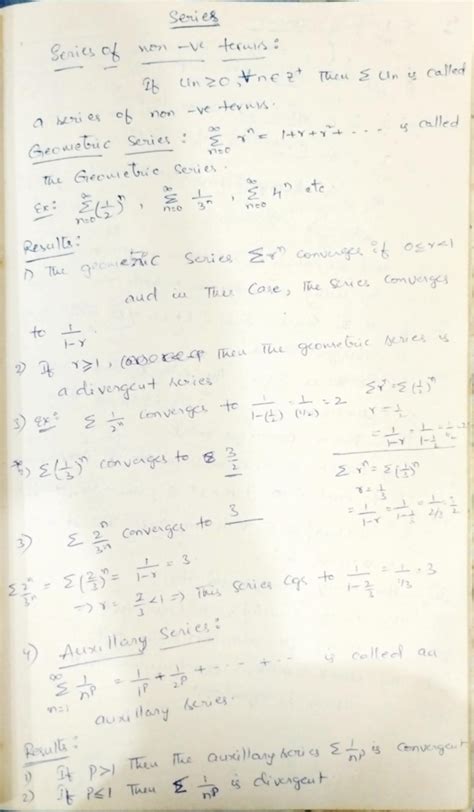 Series
Series of non -ve terms:
If Un ≥ 0, ∀ n ∈ Z⁺ Then Σ Un is called
a series of non -ve terms.
Geometric Series: Σ_{n=0}^{∞} rⁿ = 1+r+r²+ - - - - is called
The Geometric Series.
Ex: Σ_{n=0}^{∞} (1/2)ⁿ, Σ_{n=0}^{∞} 1/3ⁿ, Σ_{n=0}^{∞} 4ⁿ etc
Results:
1) The geometric Series Σrⁿ converges if 0≤r<1
and in This Case, The series converges
to 1/(1-r).
2) If r≥1, Then The geometric series is
a divergent series
3) Ex: Σ 1/2ⁿ converges to 1/(1-(1/2)) = 1/(1/2) = 2
Σrⁿ = Σ(1/2)ⁿ
r = 1/2
= 1/(1-r) = 1/(1-1/2)
Σ(1/3)ⁿ converges to 3/2
Σ rⁿ = Σ(1/3)ⁿ
r = 1/3
= 1/(1-r) = 1/(1-1/3) = 1/(2/3) = 3/2
3) Σ 2ⁿ/3ⁿ converges to 3
Σ 2ⁿ/3ⁿ = Σ(2/3)ⁿ = 1/(1-r) = 3
⇒ r = 2/3 < 1 ⇒ This Series cgs to 1/(1-2/3) = 1/(1/3) = 3
4) Auxillary Series:
Σ_{n=1}^{∞} 1/nᵖ = 1/1ᵖ + 1/2ᵖ + - - - + - - is called an
auxillary series.
Results:
1) If P>1 Then The auxillary series Σ 1/nᵖ is convergent
2) If P≤1 Then Σ 1/nᵖ is divergent.